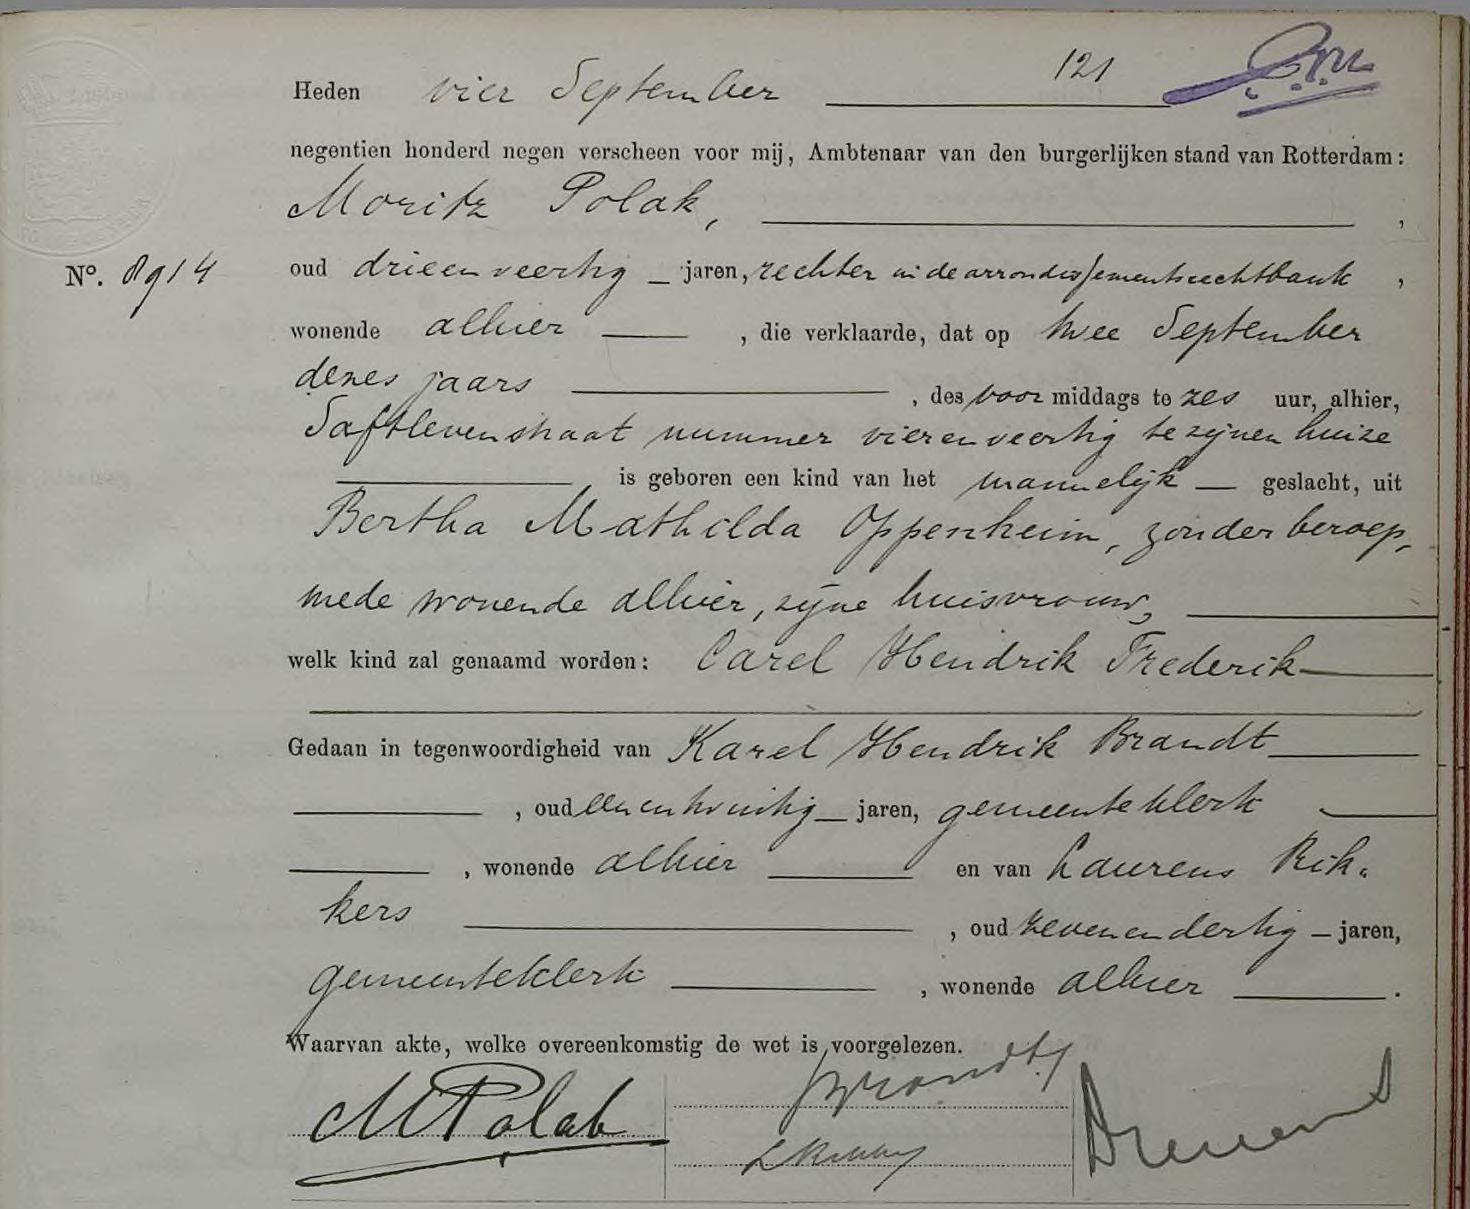 121
Heden vier September
negentien honderd negen verscheen voor mij, Ambtenaar van den burgerlijken stand van Rotterdam:
Moritz Polak, ,
No. 8914 oud drieenveertig jaren, rechter in de arrondissementsrechtbank ,
wonende alhier , die verklaarde, dat op twee September
dezes jaars , des voor middags te zes uur, alhier,
Saftlevenstraat nummer vierenveertig te zijnen huize
is geboren een kind van het mannelijk geslacht, uit
Bertha Mathilda Oppenheim, zonder beroep,
mede wonende alhier, zijne huisvrouw,
welk kind zal genaamd worden: Carel Hendrik Frederik
Gedaan in tegenwoordigheid van Karel Hendrik Brandt
, oud eenentwintig jaren, gemeenteklerk
, wonende alhier en van Laurens Rik-
kers , oud zevenendertig jaren,
gemeenteklerk , wonende alhier .
Waarvan akte, welke overeenkomstig de wet is voorgelezen.
MPolak Brandt